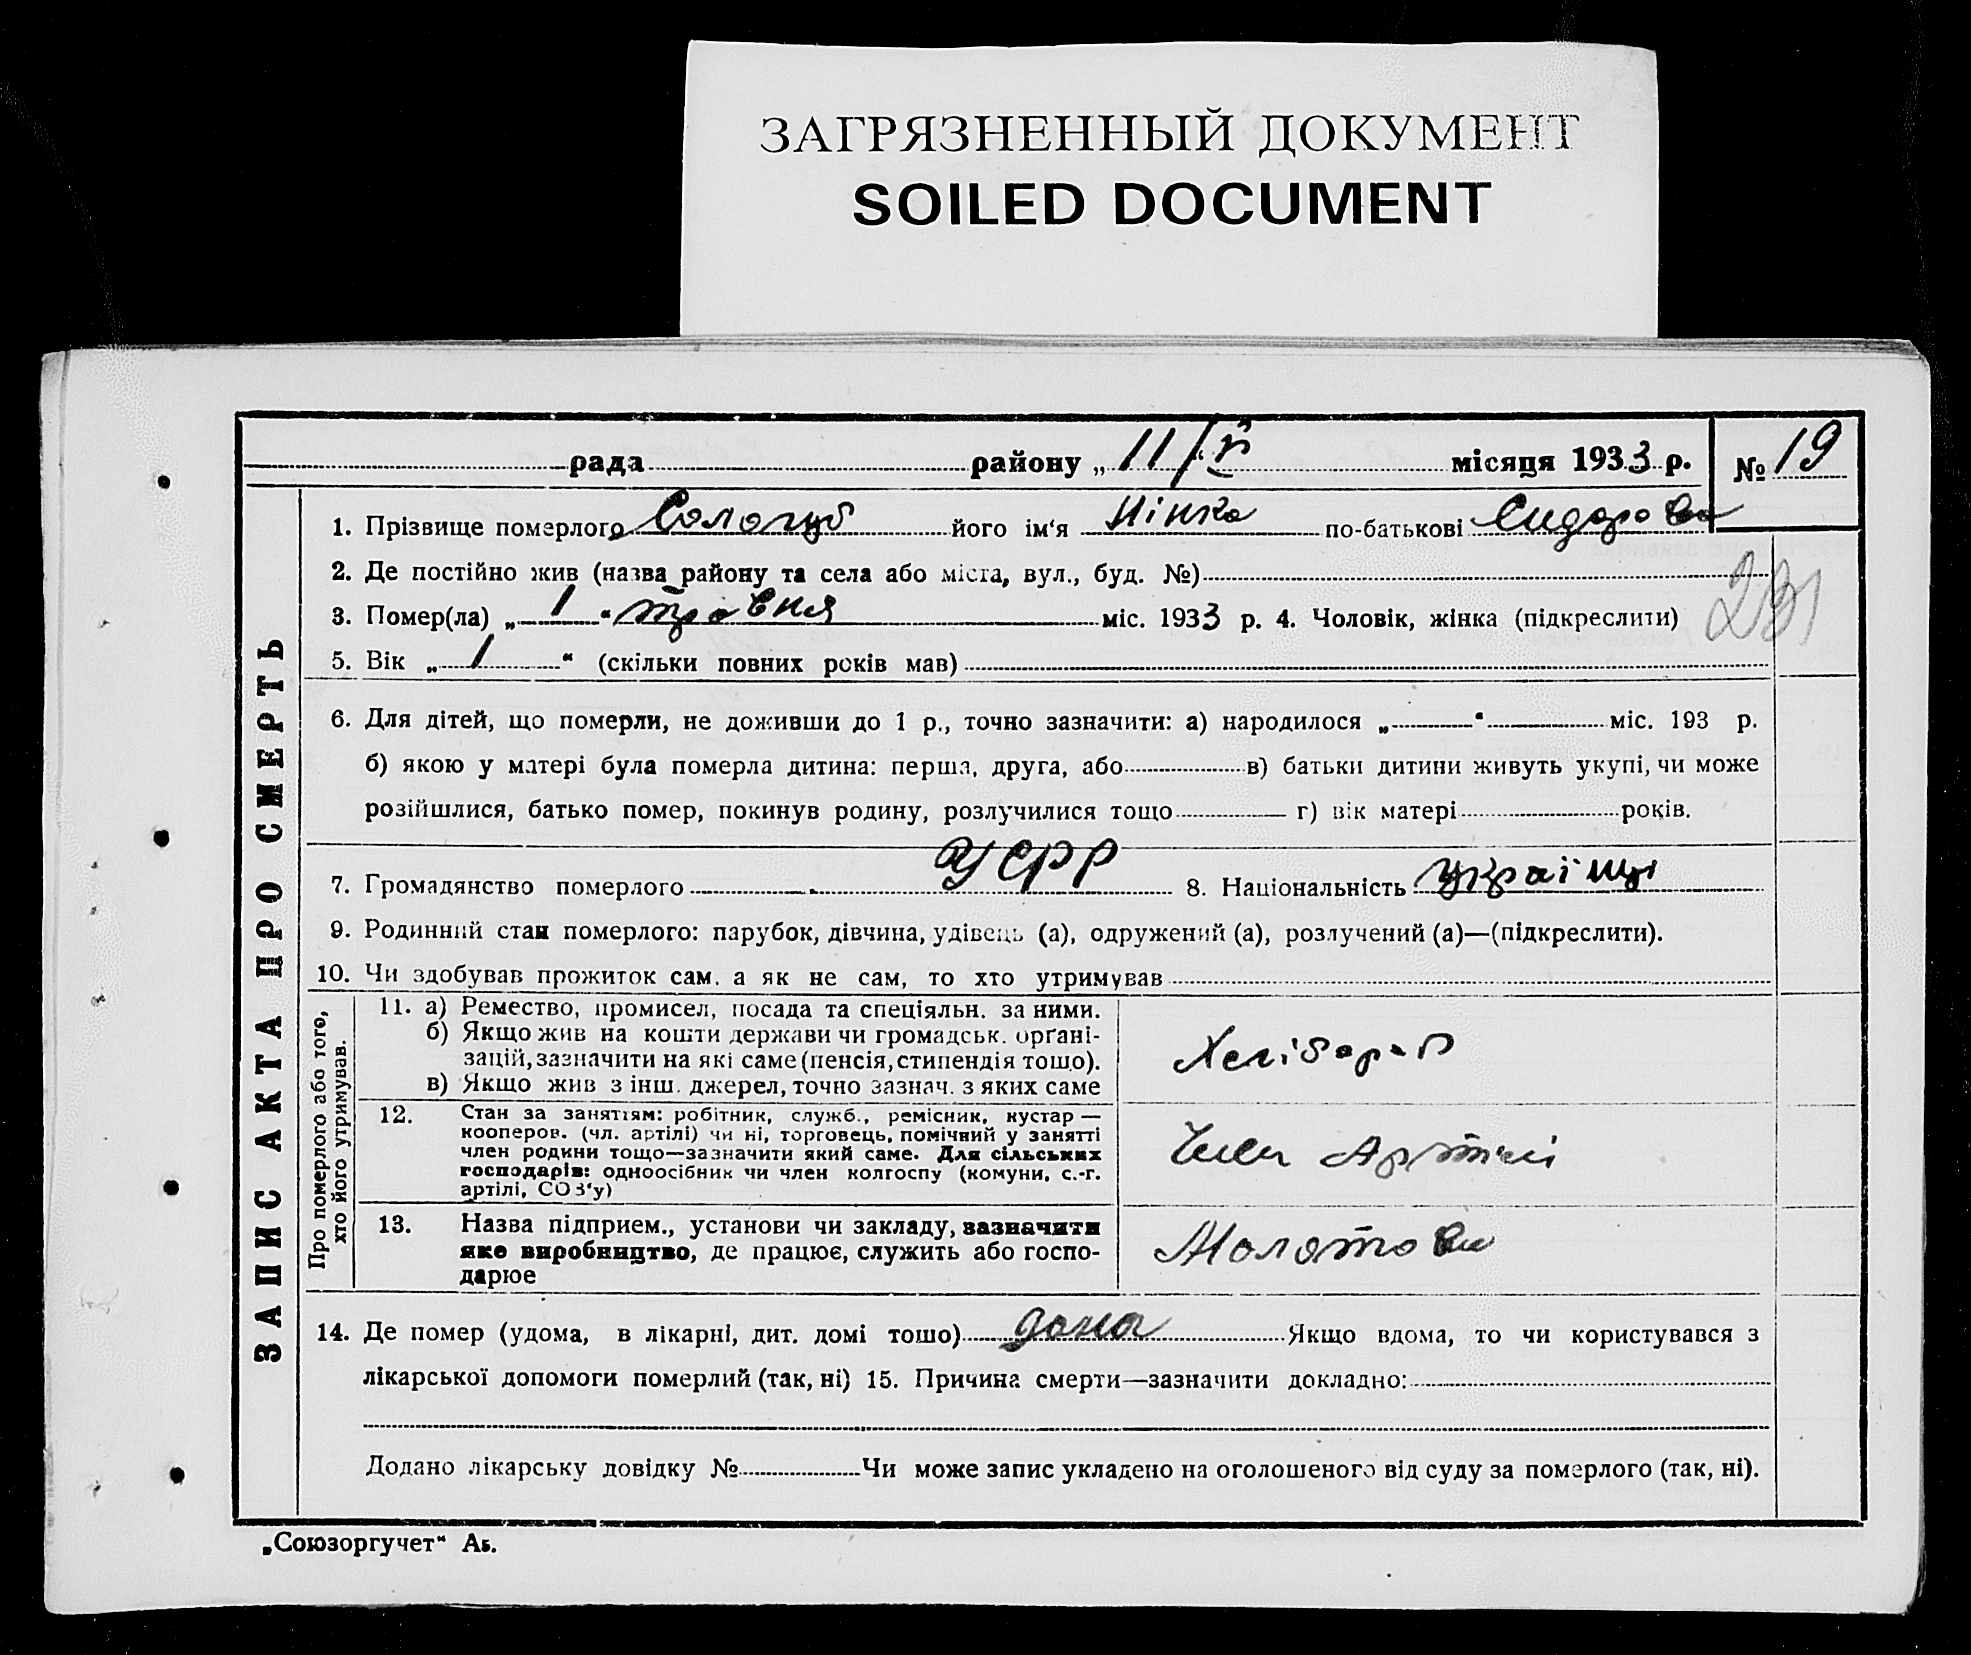 ЗАГРЯЗНЕННЫЙ ДОКУМЕНТ
SOILED DOCUMENT
рада района „ 11/V місяця 1933 р. № 19
1. Прізвище померлого Сологуб його ім'я Нінка по-батькові Сидорова
2. Де постійно жив (назва району та села або міста, вул., буд. №)
231
3. Помер(ла) „ 1 “ травня міс. 1933 р. 4. Чоловік, жінка (підкреслити)
5. Вік „ 1 “ (скільки повних років мав)
6. Для дітей, що померли, не доживши до 1 р., точно зазначити: а) народилося „ “ міс. 193 р.
б) якою у матері була померла дитина: перша, друга, або в) батьки дитини живуть укупі, чи може
розійшлися, батько помер, покинув родину, розлучилися тощо г) вік матері років.
7. Громадянство померлого УСРР 8. Національність Україці
9. Родинний стан померлого: парубок, дівчина, удівець (а), одружений (а), розлучений (а)—(підкреслити).
10. Чи здобував прожиток сам, а як не сам, то хто утримував
ЗАПИС АКТА ПРО СМЕРТЬ
Про померлого або того,
хто його утримував.
11. а) Ремество, промисел, посада та спеціяльн. за ними.
б) Якщо жив на кошти держави чи громадськ. органі-
зацій, зазначити на які саме (пенсія, стипендія тощо).
в) Якщо жив з інш. джерел, точно зазнач. з яких саме
Хлібороб
12. Стан за заняттям: робітник, служб., ремісник, кустар —
кооперов. (чл. артілі) чи ні, торговець, помічний у занятті
член родини тощо—зазначити який саме. Для сільських
господарів: одноосібник чи член колгоспу (комуни, с.-г.
артілі, СОЗ'у)
Член Артілі
13. Назва підприєм., установи чи закладу, зазначити
яке виробництво, де працює, служить або госпо-
дарює
Молотова
14. Де помер (удома, в лікарні, дит. домі тощо) дома Якщо вдома, то чи користувався з
лікарської допомоги померлий (так, ні) 15. Причина смерти—зазначити докладно:
Додано лікарську довідку № Чи може запис укладено на оголошеного від суду за померлого (так, ні).
„Союзоргучет“ Аб.